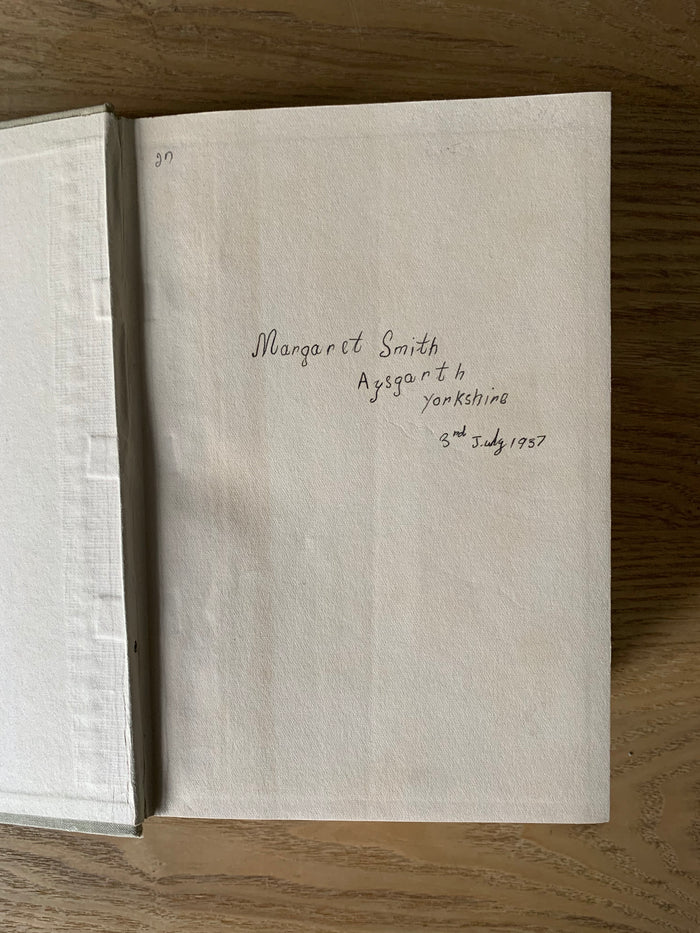 Margaret Smith
Aysgarth
Yorkshire
3nd July 1937